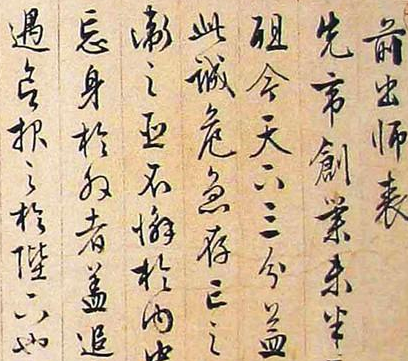 前出师表
先帝創業未半
殂今天下三分益
此诚危急存亡之
衛之臣不懈於内忠
忘身於外者盖追
遇欲报之於陛下也